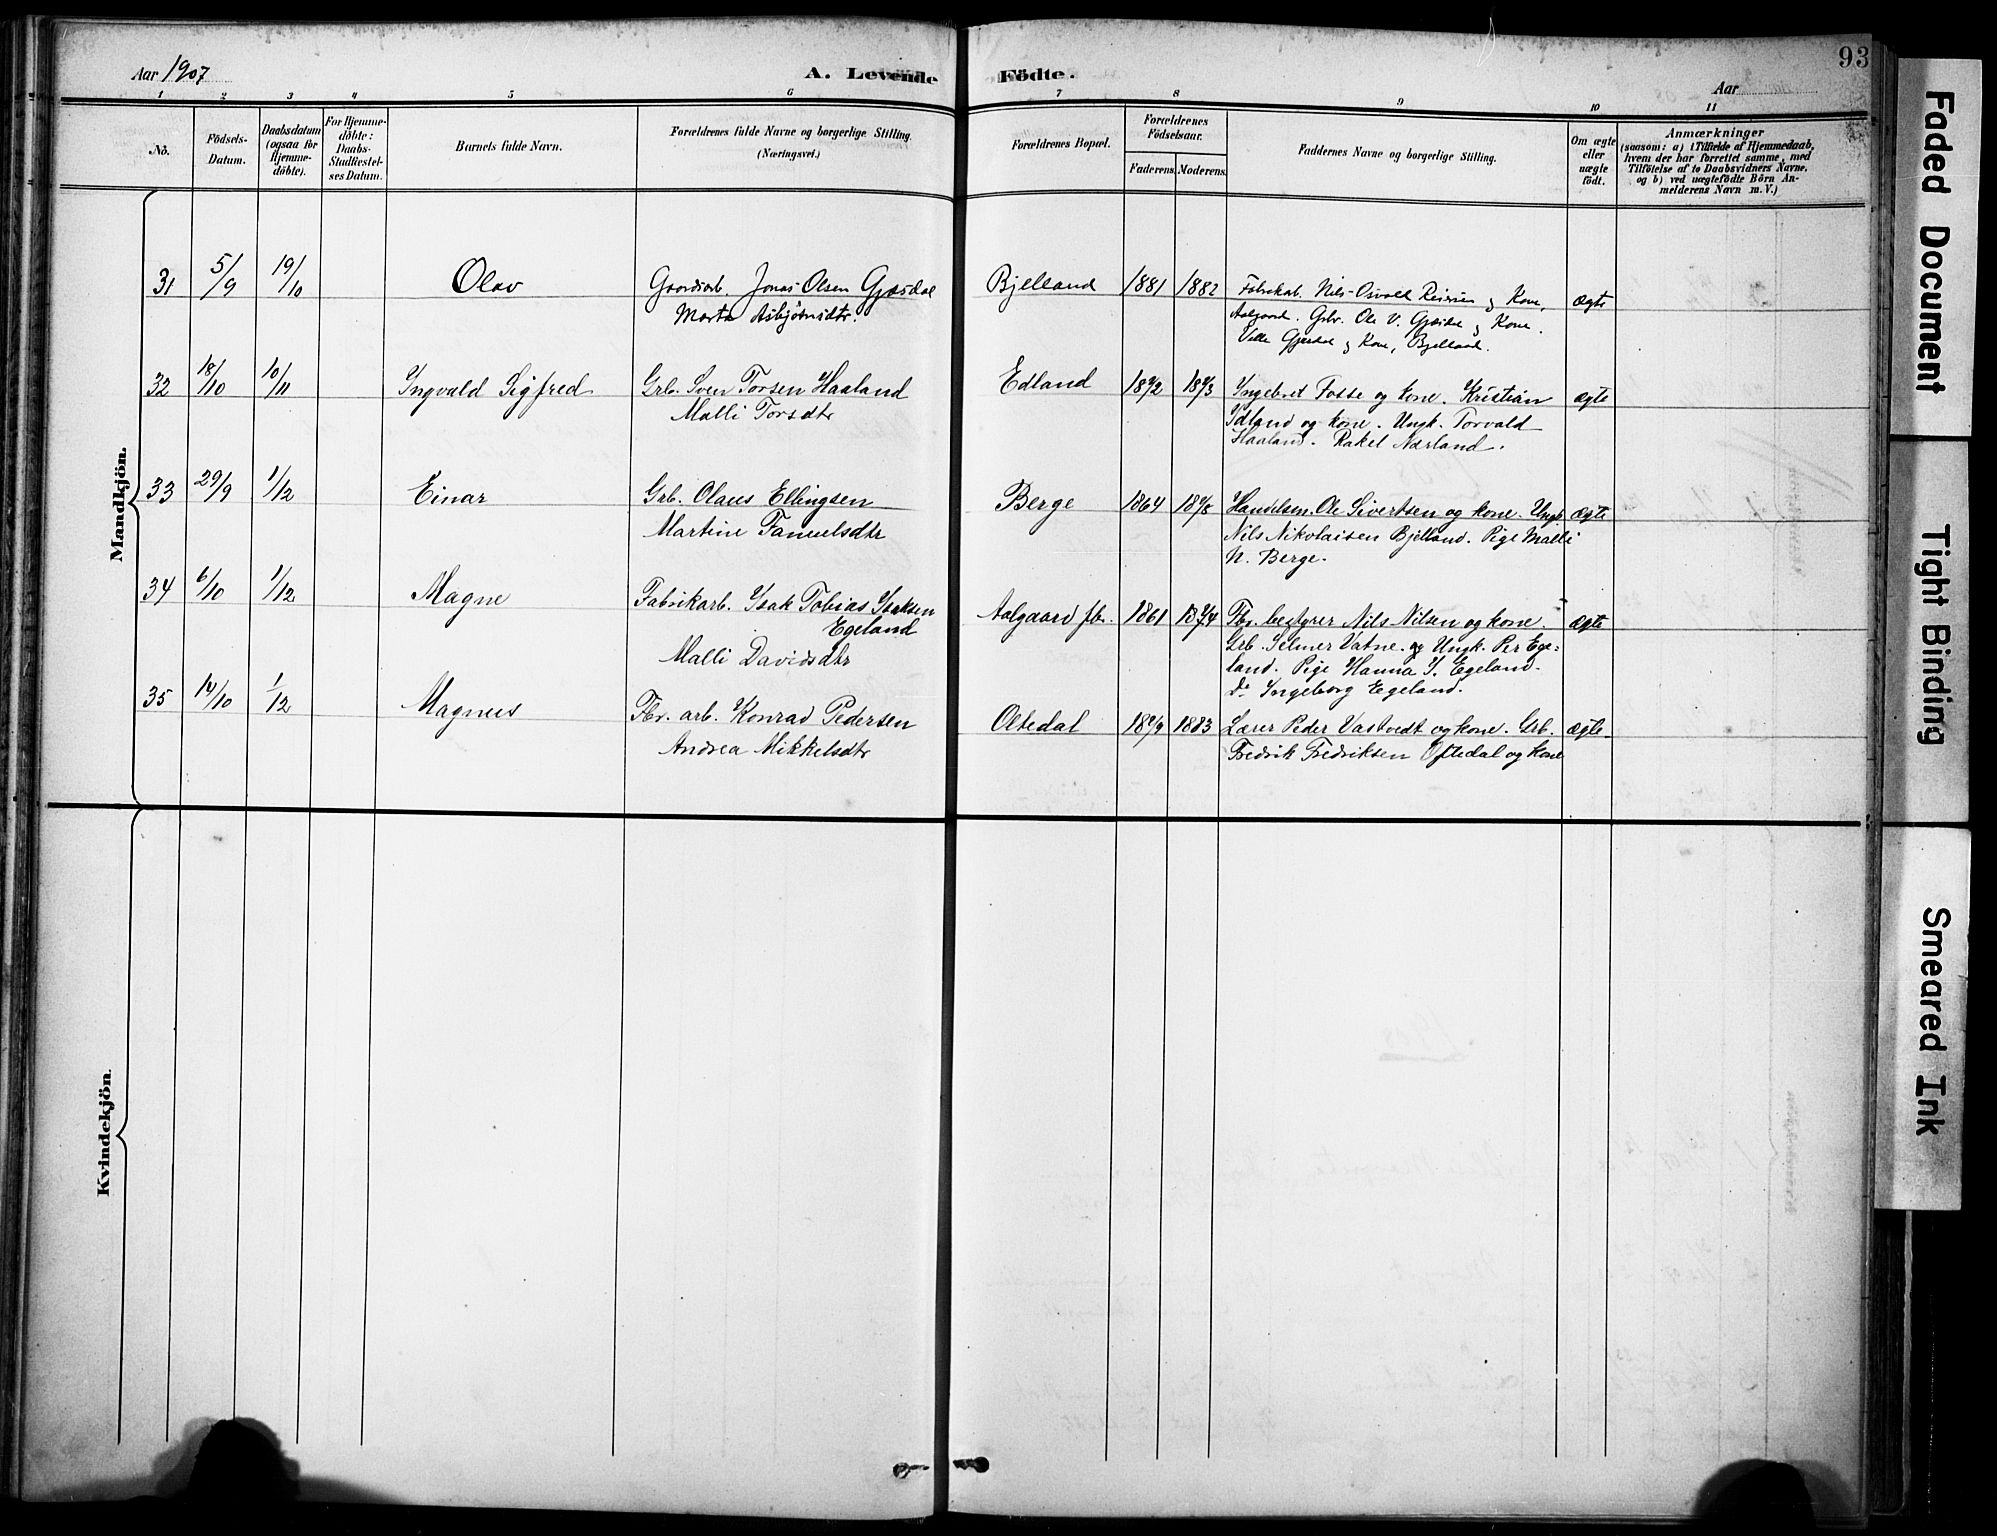 Aar 1907
A. Levende Födte.
Aar
93
1 2 3 4 5 6 7 8 9 10 11
No.
Födsels-Datum.
Daabsdatum (ogsaa for Hjemme-döbte).
For Hjemme-döbte: Daabs-Stadfæstel-ses Datum.
Barnets fulde Navn.
Forældrenes fulde Navne og borgerlige Stilling. (Næringsvei.)
Forældrenes Bopæl.
Forældrenes Födselsaar.
Faderens. Moderens.
Faddernes Navne og borgerlige Stilling.
Om ægte eller uægte födt.
Anmærkninger
(saasom: a) i Tilfælde af Hjemmedaab,
hvem der har forrettet samme, med
Tilföielse af to Daabsvidners Navne,
og b) ved uægtefödte Börn An-
melderens Navn m. V.)
Mandkjön.
31 5/9 19/10 Olav Gaardarb. Jonas Olsen Gjesdal Bjelland 1881 1882 Fabrikab. Nils Osvald Reiersen og Kone, ægte
Marta Asbjörnsdtr. Aalgaard. Grbr. Ole V. Gjesdal og Kone.
Ville Gjesdal og Kone, Bjelland.
32 18/10 10/11 Ingvald Sigfred Grb. Sven Torsen Haaland Edland 1872 1873 Ingebret Fosse og kone. Kristian ægte
Malli Torsdtr Idland og kone. Ungk. Torvald
Haaland. Rakel Nærland.
33 29/9 1/12 Einar Grb. Olaus Ellingsen Berge 1864 Handelsm. Ole Sivertsen og kone. Ungk. ægte
Martine Samuelsdtr Nils Nikolaisen Bjelland. Pige Malli
N. Berge.
34 6/10 1/12 Magne Fabrikarb. Isak Tobias Isaksen Aalgaard fbr. 1861 1874 Fbr. bestyrer Nils Nilsen og kone. ægte
Egeland Grb. Selmer Vatne. og Ungk. Per Ege=
Malli Davidsdtr land. Pige Hanna I. Egeland.
Do Ingeborg Egeland.
35 14/10 1/12 Magnus Fbr. arb. Konrad Pedersen Oltedal 1879 1883 Lærer Peder Vastvedt og kone. Grb. ægte
Andrea Mikkelsdtr Fredrik Fredriksen Oftedal og kone
Kvindekjön.
Faded Document
Tight Binding
Smeared Ink